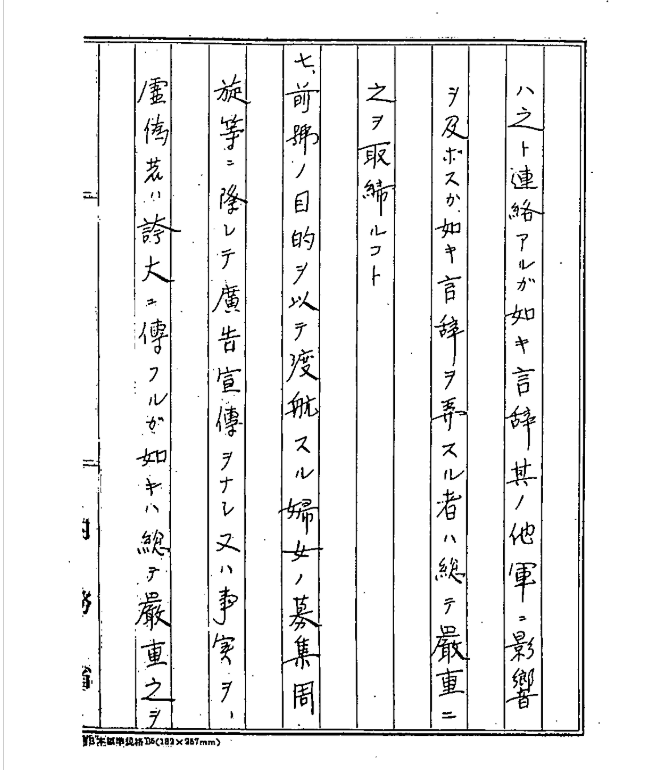 ハ之ト連絡アルガ如キ言辞其ノ他軍ニ影響
ヲ及ボスガ如キ言辞ヲ弄スル者ハ総テ厳重ニ
之ヲ取締ルコト
七、前號ノ目的ヲ以テ渡航スル婦女ノ募集周
旋等ニ際シテ廣告宣傳ヲナシ又ハ事実ヲ
虚偽若ハ誇大ニ傳フルガ如キハ総テ嚴重之ヲ
内務省
日本標準規格B5(182×257mm)